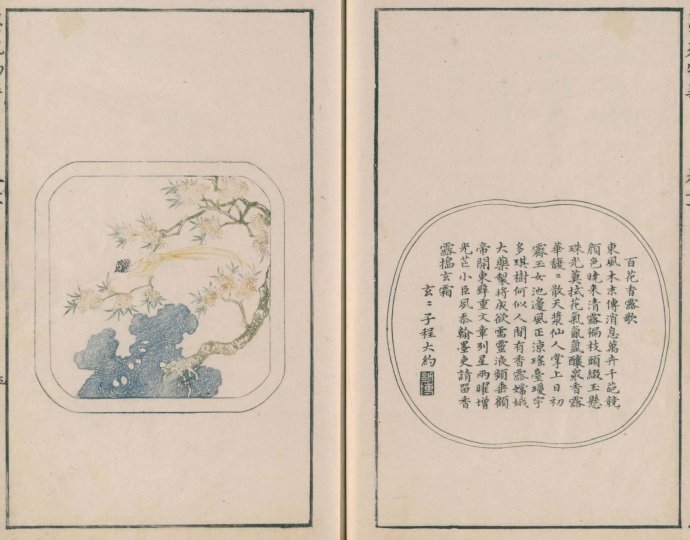 百花香露歌
東風木末傳消息萬卉千葩競
顏色曉來清露徧枝頭綴玉懸
珠光莫拭花氣氤氳釀衆香露
華馥〻散天漿仙人掌上日初
霽玉女池邊風正涼瑤臺瓊宇
多琪樹何似人間有香露嫦娥
大藥製將成欲需靈液頻垂顧
帝開東壁重文章列星兩曜增
光芒小臣夙忝翰墨吏請留香
露搗玄霜
玄〻子程大約